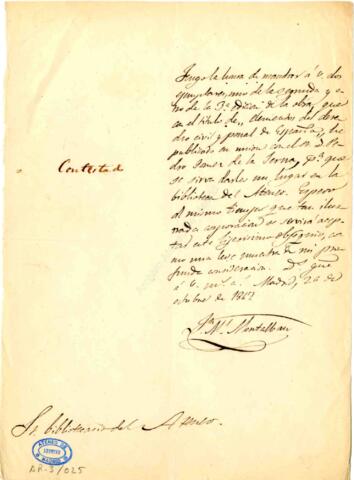 Tengo la honra de mandar á V. dos
ejemplares, uno de la segunda y o-
tro de la 3ª edicion de la obra, que
con el título de „Elementos del dere-
cho civil y penal de España„ he
publicado en union con el Sr. D. Pe-
dro Gomez de la Serna, pª que
se sirva darles un lugar en la
biblioteca del Ateneo. Espero
al mismo tiempo que tan ilus-
trada corporacion se servirá acep-
tar este ligerísimo obsequio, co-
mo una leve muestra de mi pro-
funda consideracion. D. gue
á V. ms. as. Madrid, 26 de
octubre de
Contestada
Jn. Ml. Montalban
Sr. bibliotecario del Ateneo.
ATENEO DE
MADRID
AR-3/025